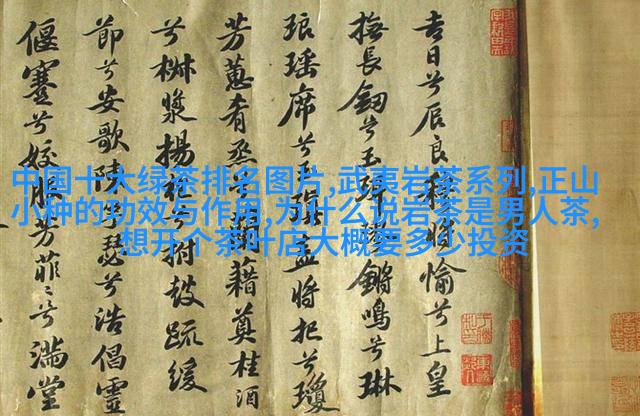 吉日兮辰良穆將愉兮上皇
撫長劒兮玉珥璆鏘鳴兮琳
琅瑤席兮玉瑱盍將把兮瓊
芳蕙肴烝兮蘭藉奠桂酒
兮椒漿揚枹兮拊鼓疏緩
節兮安歌陳竽瑟兮浩倡靈
偃蹇兮姣服芳菲〻兮滿堂
中国十大绿茶排名图片,武夷岩茶系列,正山
小种的功效与作用,为什么说岩茶是男人茶,
想开个茶叶店大概要多少投资